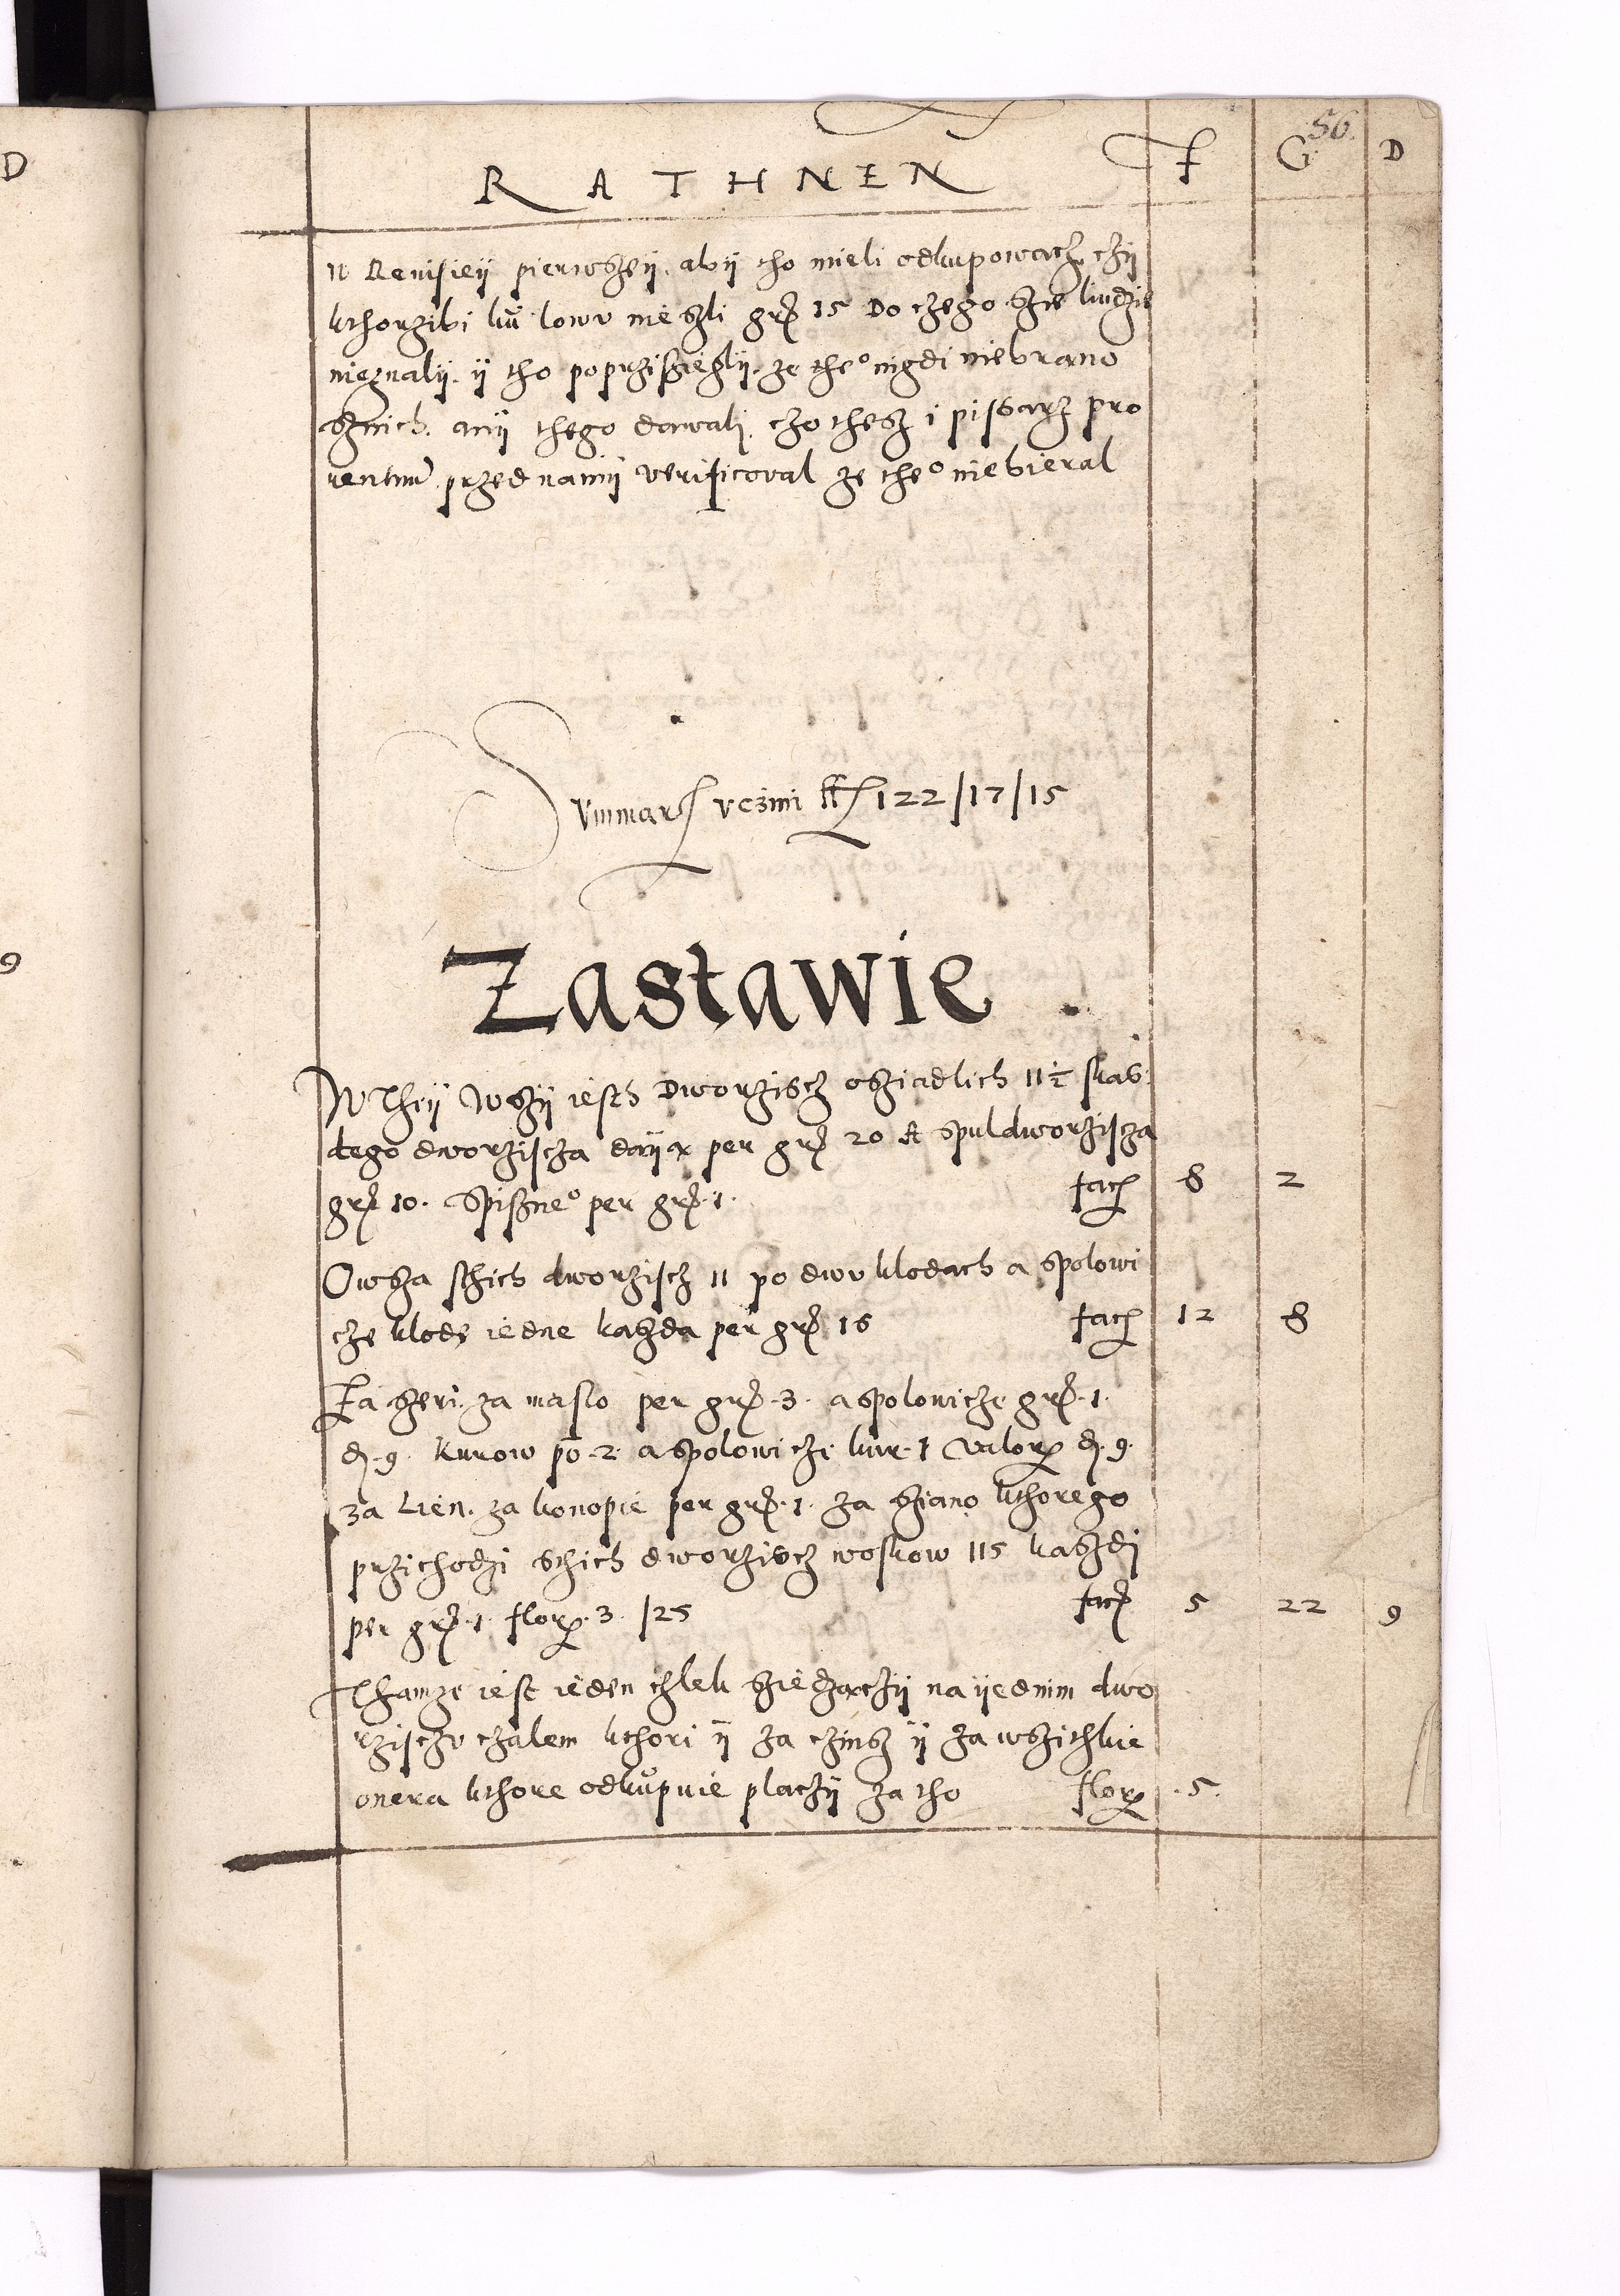 D
9
56.
RATHNEN F G D
w Reuisieÿ pierwszeÿ. abÿ tho mieli odkupowacz czÿ
kthorzibi ku lowu nie szli grz 15 Do czego szie liudzie
nieznalÿ. ÿ tho poprzisziegliÿ. ze theº nigdi niebrano
sznich. aniÿ thego dawali. czo thesz i pissarz pro
uentuu przed namÿ verificoval ze theº niebieral
Summar veśnii ff 122/17/15
Zastawie
W Theÿ Wszÿ iesth Dworziscz osziadlich 11½ skas
dego dworziscza daÿą per grz 20 A spuldworzisza
grz 10. Spiszneº per grz 1. facz 8 2
Owsza sthich dworziscz 11 po dwu klodach a spolowi
cze klode iedne kaszda per grz 16 facz 12 8
Ja szeri. za maslo per grz. 3. a spolowicze grz. 1.
d. 9. Kurow po. 2. a spolowicze kur. 1 valor d. 9.
za Lien. za konopie per grz. 1. za sziano kthorego
przichodzi sthich dworziscz woskow 115 kaszdj
per grz. 1. flor. 3. /25 facz 5 22 9
Thamze iest ieden czlek sziedzączÿ na ÿednim dwo
rziscżu czalem kthori ÿ za czinsz ÿ za wszithkie
onera kthore odkupuie placzÿ za tho flor .5.